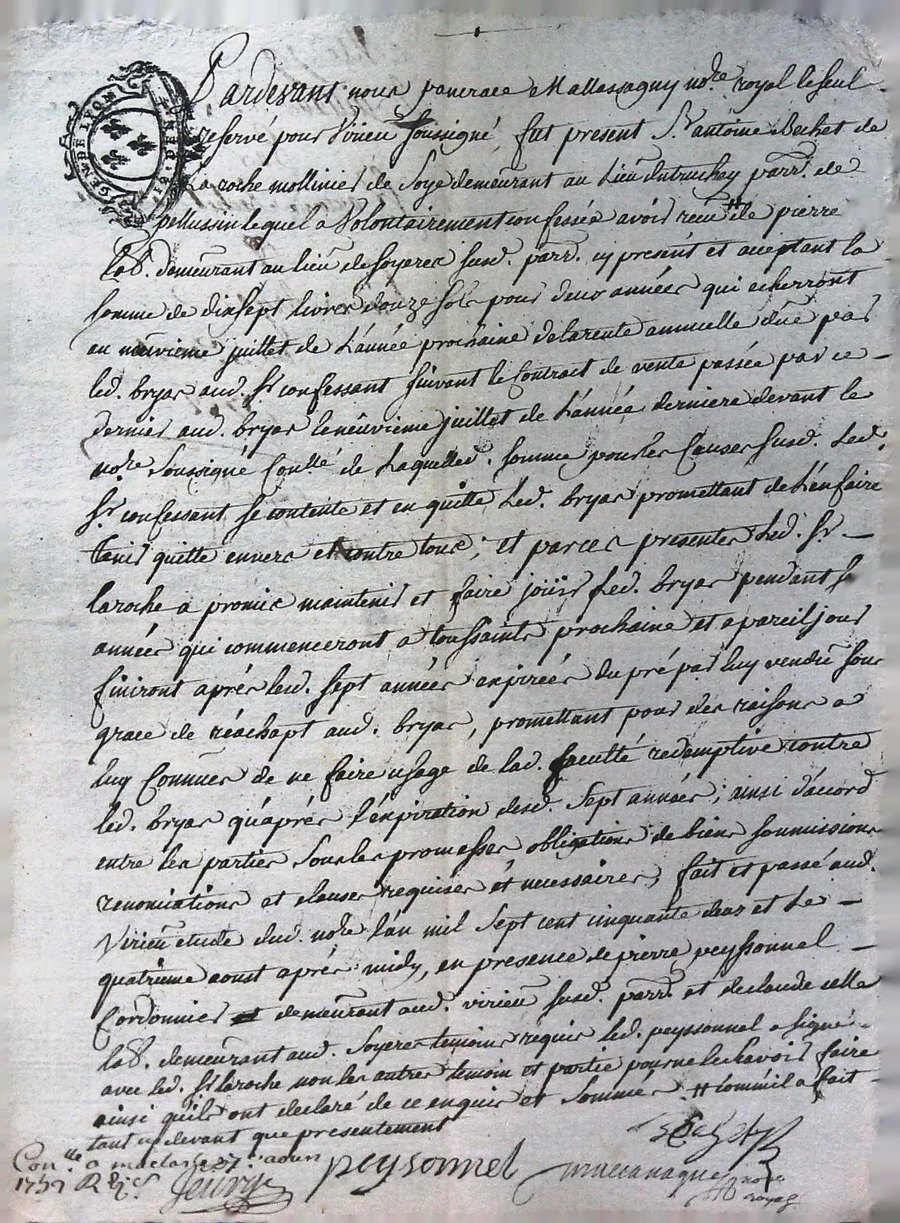 GEN. DE LYON
Pardevant nous pancrace Mallassagny no.re royal le seul
reservé pour Virieu soussigné, fut present S.r antoine Bechet de
La roche mollinier de Soye demeurant au Lieu parr. de
pellussin lequel a Volontairement confessé avoir receu # de pierre
lab. demeurant au lieu de soyeres susd. parr. cy présent et acceptant la
somme de dixsept livres douze sols pour deux années qui echerront
au neuvieme juillet de L'année prochaine de la rente annuelle düe par
led. bryas aud. Sr confessant suivant le Contract de vente passée par ce
dernier aud. bryas le neuvieme juillet de L'année derniere devant le
no.re soussigné Con.llé de Laquelled. somme pour les Causes susd. Led.
Sr confessant se contente et en quitte Led. bryas promettant de L'en faire
tenir quitte envers et contre tous; et par ces presentes Led. Sr
laroche a promis maintenir et faire joüir Led. bryas pendant 7
années qui commenceront a toussaints prochaine et a pareil jour
finiront aprés lesd. sept années expirées du pré par luy vendu sous
grace de réachapt aud. bryas, promettant pour des raisons a
luy Connues de ne faire usage de lad. faculté redemptive contre
led. bryas qu'aprés l'expiration desd. sept années; ainsi d'accord
entre les parties sous les promesses obligation de biens soumissions
renonciations et clauses requises et necessaires, fait et passé aud.
Virieu étude dud. no.re l'an mil sept cent cinquante deux et Le
quatrieme aoust aprés midy, en presence de pierre peyssonnel
Cordonnier demeurant aud. virieu susd. parr. et de claude selle
lab. demeurant aud. Soyeres temoins requis led. peyssonnel a signé
avec led. Sr laroche non les autres temoin et partie pour ne le scavoir faire
ainsi qu'ils ont declaré de ce enquis et sommés # comme il a fait
tant cy devant que presentement
Con.lle a maclas le 17.e aoust
1752 R
peyssonnel
no.re
royal